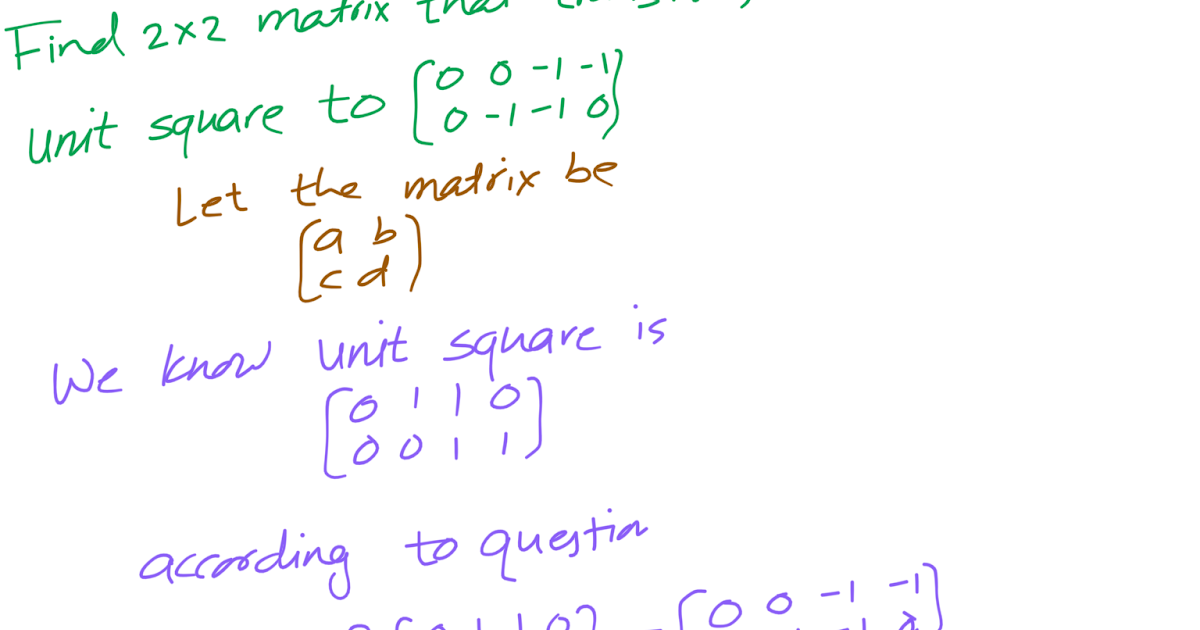 Find 2×2 matrix that
unit square to [0 0 -1 -1
0 -1 -1 0]
Let the matrix be
[a b
c d]
We know unit square is
[0 1 1 0
0 0 1 1]
according to question
[0 0 -1 -1]